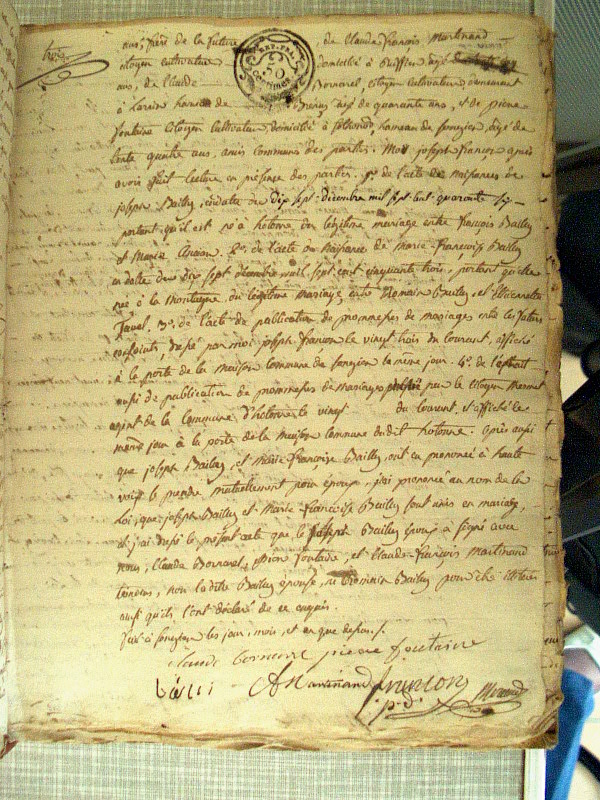 trois
ans, frère de la future de Claude François Martinand
citoyen cultivateur domicilié à Ruffieu, âgé
REP. FRA.
50
Centimes
ans, de Claude Bornarel, citoyen cultivateur demeurant
à hameau de âgé de quarante ans, et de pierre
fontaine citoyen cultivateur domicilié à hameau de songieu, âgé de
trente quatre ans, amis communs des parties. Moi joseph françon après
avoir fait lecture en présence des parties. 1º de l'acte de naissance de
joseph Bailly, en date du dix sept décembre mil sept cent quarante
portant qu'il est né à hotonne du légitime mariage entre françois Bailly
et Marie 2º. de l'acte de naissance de marie françoise Bailly
en date du dix sept décembre mil sept cent cinquante trois, portant qu'elle
née à la montagne du légitime mariage entre Romain Bailly, et Etiennette
Javel. 3º. de l'acte de publication de promesses de mariages entre les futurs
conjoints, par moi joseph françon le vingt trois du courant, affiché
à la porte de la maison commune de songieu le même jour. 4º. de l'extrait
aussi de publication de promesses de mariage par le citoyen
agent de la Commune d'hotonne le vingt du courant, et affiché le
même jour à la porte de la maison commune dudit hotonne. après aussi
que joseph Bailly, et marie françoise Bailly, ont eu prononcé à haute
voix se prendre mutuellement pour époux, j'ai prononcé au nom de la
Loi, que joseph Bailly et Marie françoise Bailly sont unis en mariage,
et j'ai le présent acte que le joseph Bailly époux a signé avec
nous, Claude Bornarel, pierre fontaine, et Claude françois Martinand
témoins, non ladite Bailly épouse, ni Bailly pour être illitérés
ainsi qu'ils l'ont déclaré de ce enquis.
fait à songieu les jour, mois, et an que dessus.
claude bornarel pierre fontaine
bailli Martinand françon